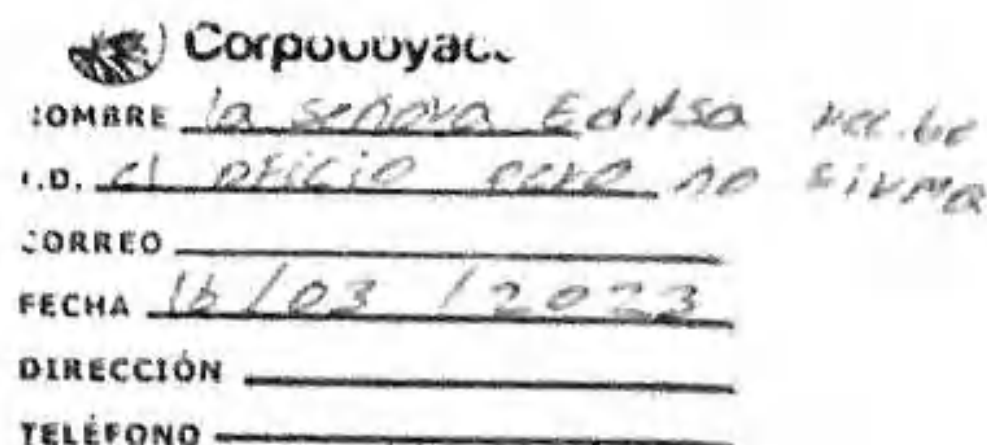 Corpoboyacá
NOMBRE la señora Edilsa recibe
I.D. el oficio pero no firma
CORREO
FECHA 16/03/2023
DIRECCIÓN
TELÉFONO